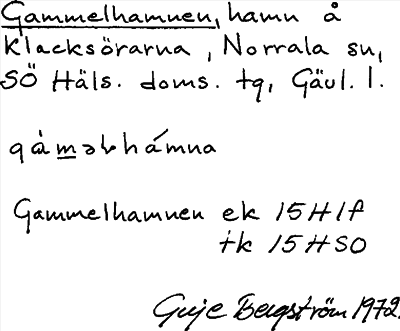 Gammelhamnen, hamn å
Klacksörarna, Norrala sn,
SÖ Häls. doms. tg, Gävl. l.
gàməlhámna
Gammelhamnen ek 15H1f
tk 15HSO
Guje Bergström 1972.